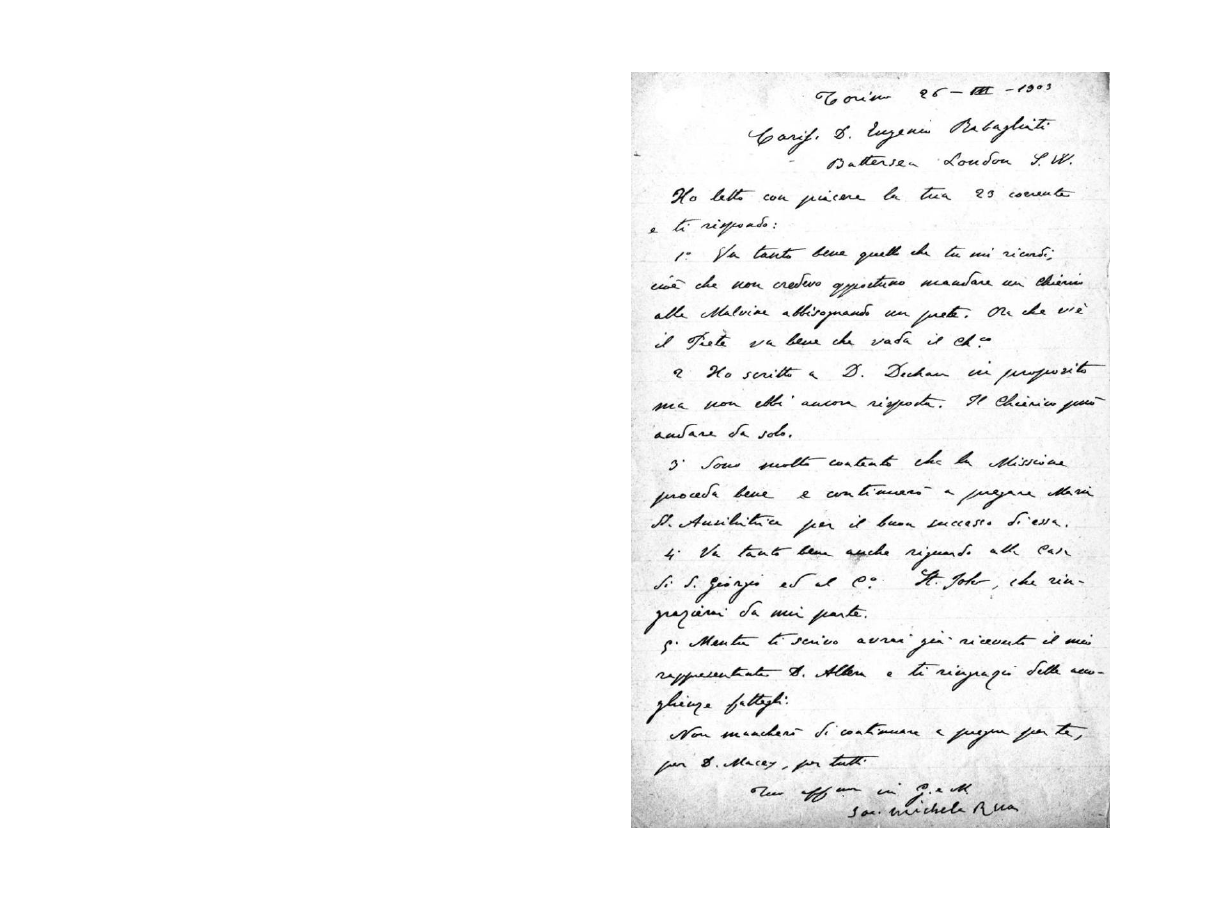 Torino 26 – III – 1903
Caris. D. Eugenio Rabagliati
Battersea London S. W.
Ho letto con piacere la tua 23 corrente
e ti rispondo:
1° Va tanto bene quello che tu mi ricordi,
cioè che non credevo opportuno mandare un Chierico
alle Malvine abbisognando un prete. Or che v'è
il Prete va bene che vada il Ch.co
2 Ho scritto a D. in proposito
ma non ebbi ancora risposta. Il Chierico può
andare da solo.
3° Sono molto contento che la Missione
proceda bene e continuerò a pregare Maria
SS. Ausiliatrice per il buon successo di essa.
4° Va tanto bene anche riguardo alla Casa
di S. Giorgio ed al C.° St. John, che rin-
grazierai da mia parte.
5° Mentre ti scrivo avrai già ricevuto il mio
rappresentante D. Albera e ti ringrazio delle acco-
glienze fattegli.
Non mancherò di continuare a pregare per te,
per D. Macey, per tutti
Tuo aff in G. e M
Sac. Michele Rua